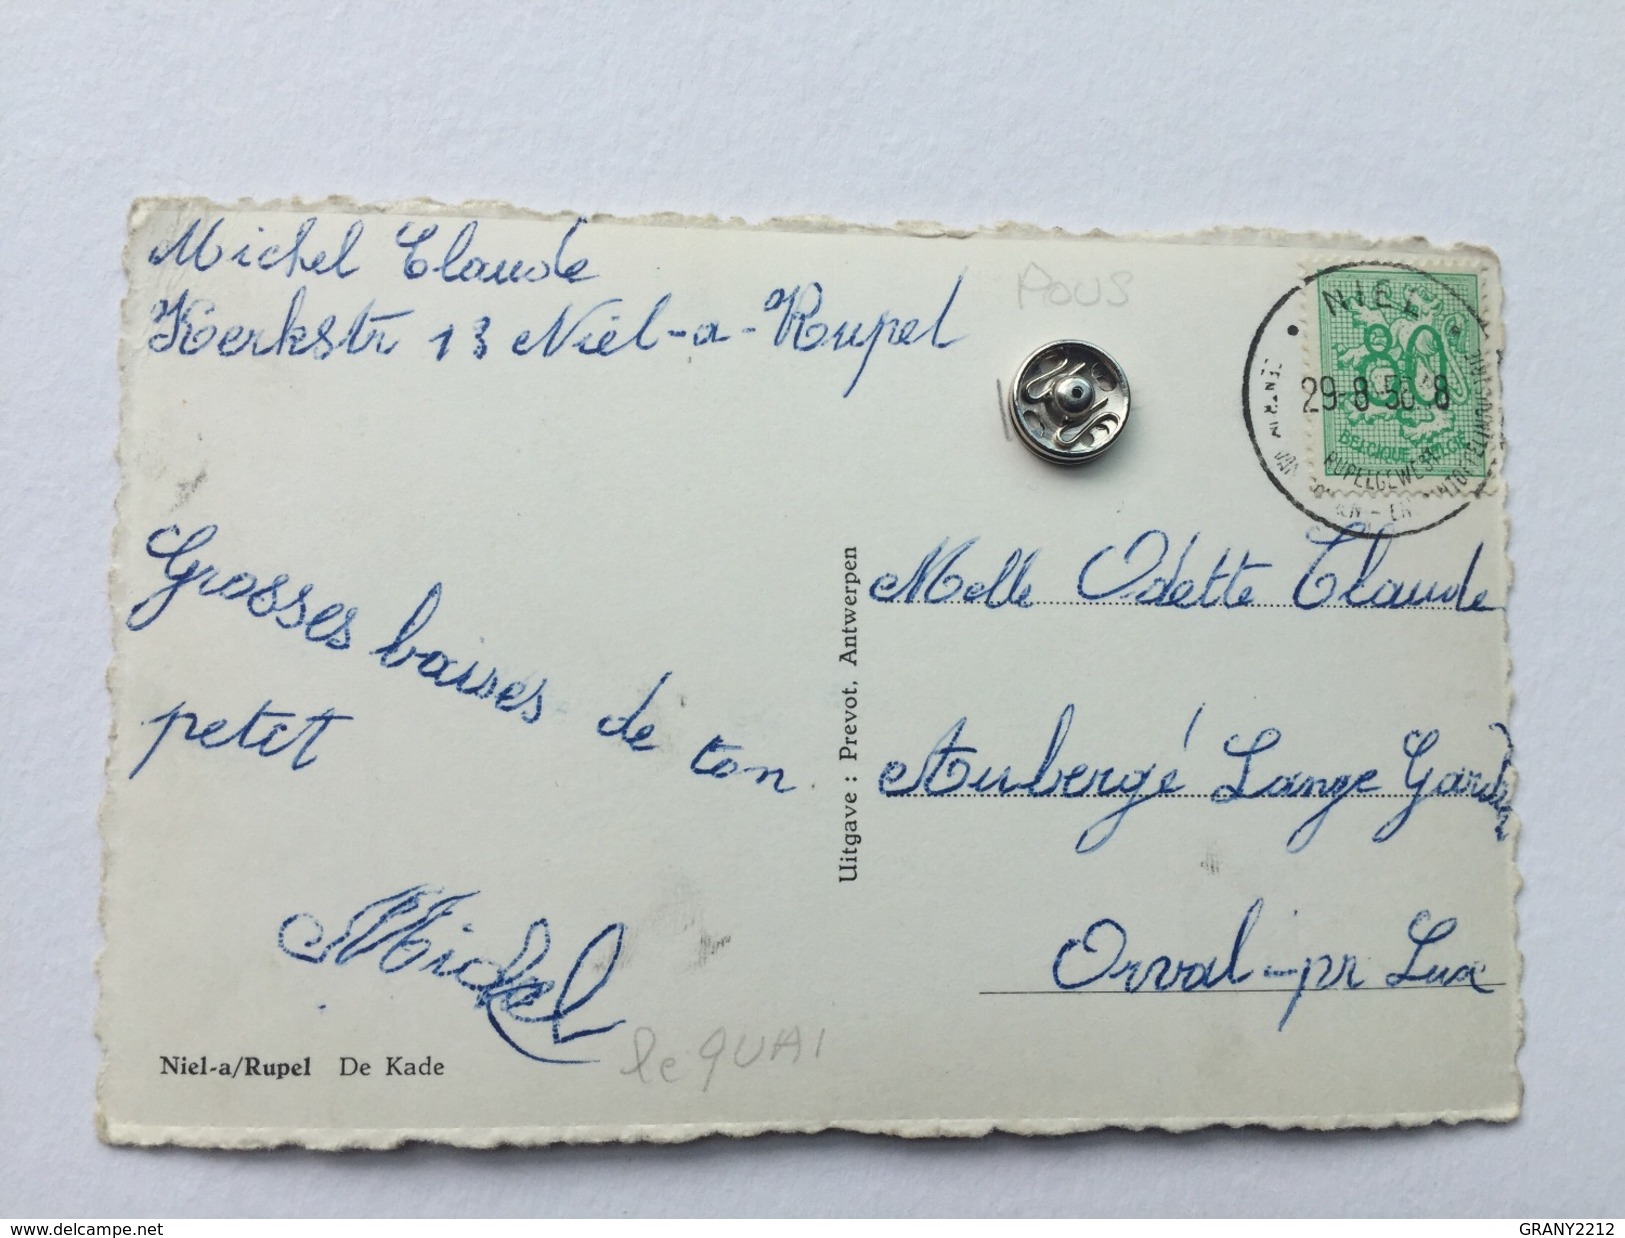 Michel Claude
Kerkstr 13 Niel-a-Rupel
Grosses baises de ton
petit
Michel
Niel-a/Rupel De Kade
le QUAI
Uitgave : Prevot, Antwerpen
POUS
NIEL
29-8-58-8
80
BELGIQUE-BELGIE
RUPELGEWEST
Melle Odette Claude
Aubergé Lange Gardien
Orval-pr Lux
delcampe.net
GRANY2212